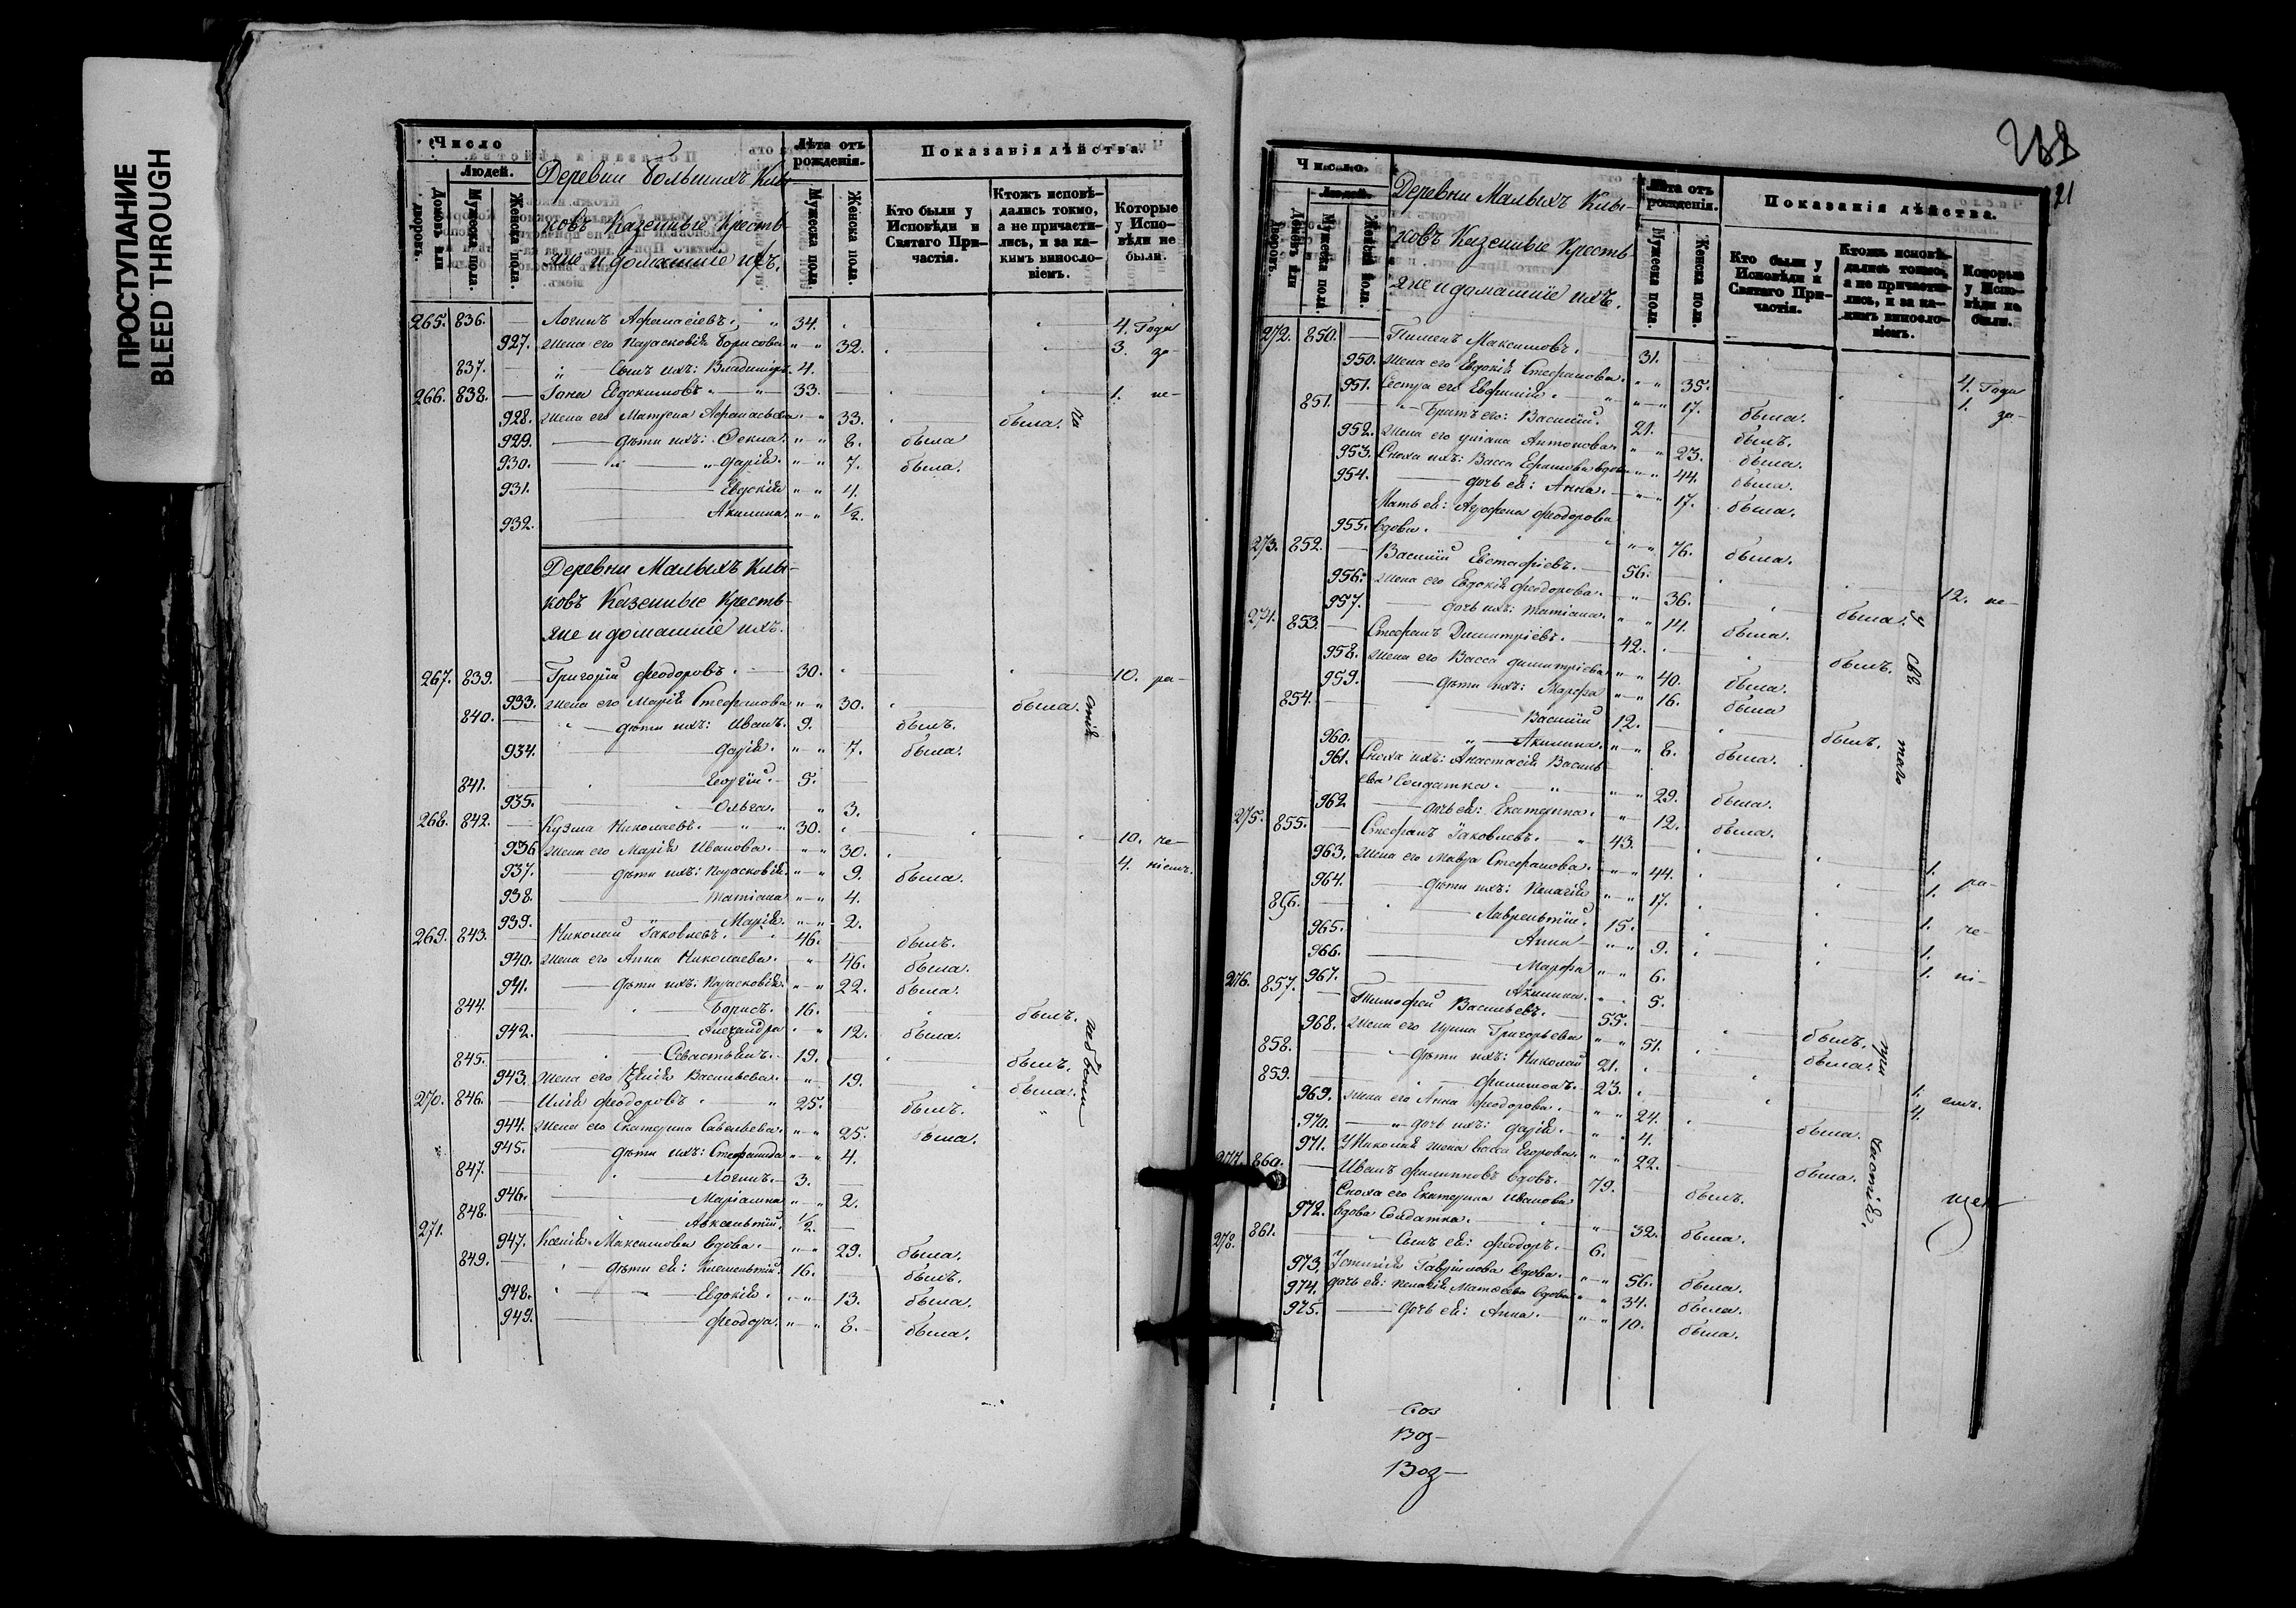 ПРОСТУПАНИЕ
BLEED THROUGH
Число
Людей.
Домовъ или дворовъ.
Мужеска пола.
Женска пола.
Деревни Большихъ Клы-
ковъ Казенные Кресть-
яне и домашніе ихъ.
Лѣта отъ рожденія.
Мужеска пола.
Женска пола.
Показанія дѣйства.
Кто были у Исповѣди и Святаго При-частія.
Ктожъ исповѣ-дались токмо, а не причасти-лись, и за ка-кимъ винosло-віемъ.
Которые у Испо-вѣди не были.
265. 836. Логинъ Афанасіевъ. 34. 4. Года
927. жена его Парасковія Борисова 32. 3. за-
837. Сынъ ихъ: Владимиръ. 4.
266. 838. Іона Евдокимовъ 33. 1. не-
928. жена его Матрена Афанасьева 33. была. на
929. дѣти ихъ: Фекла. 8. была
930. Дарія. 7. была.
931. Евдокія 4.
932. Акилина. 1/2.
Деревни Малыхъ Клы-
ковъ Казенные Кресть-
яне и домашніе ихъ.
267. 839. Григорій Феодоровъ. 30. 10. ра-
933. жена его Марія Стефанова 30. была.
840. дѣти ихъ: Иванъ. 9. былъ.
934. Дарія. 7. была.
841. Георгій. 5.
935. Ольга. 3.
268. 842. Кузма Николаевъ. 30. 10. че-
936 жена его Марія Иванова. 30. 4. ніемъ.
937. дѣти ихъ: Парасковія. 9. была.
938. Татіана 4.
939. Марія. 2.
269. 843. Николай Іаковлевъ. 46. былъ.
940. жена его Анна Николаева. 46. была.
941. дѣти ихъ: Парасковія. 22. была.
844. Борисъ. 16. былъ.
942. Александра 12. была.
845. Севастьянъ. 19. былъ.
943. жена его Васильева. 19. была.
270. 846. Илія Феодоровъ 25. былъ.
944. жена его Екатерина Савельева. 25. была.
945. дѣти ихъ: Стефанида 4.
847. Логинъ. 3.
946. Маріамна 2.
848. Авксентій. 1/2.
271. 947. Ксенія Максимова вдова. 29. была.
849. дѣти ея: Климентій. 16. былъ.
948. Евдокія. 13. была.
949. Феодора. 8. была.
21
Число.
Людей.
Домовъ или дворовъ.
Мужеска пола.
Женска пола.
Деревни Малыхъ Клы-
ковъ Казенные Кресть-
яне и домашніе ихъ.
Лѣта отъ рожденія.
Мужеска пола.
Женска пола.
Показанія дѣйства.
Кто были у Исповѣди и Святаго При-частія.
Ктожъ исповѣ-дались токмо, а не причасти-лись, и за ка-кимъ винosло-віемъ.
Которые у Испо-вѣди не были.
272. 850. Пименъ Максимовъ. 31. 4. Года
950. жена его Евдокія Стефанова. 35. 1. за-
951. Сестра его Евфимія. 17. была.
851. Братъ его: Василій. 21. былъ.
952. жена его Уліана Антонова. 23. была.
953. Сноха ихъ: Васса Ефимова вдова 44. была.
954. дочь ея: Анна. 17. была.
Мать ея: Агрофена Феодорова
955. вдова. 76. была.
273. 852. Василій Евстафіевъ. 56. 12. не-
956. жена его Евдокія Феодорова. 36. была. у
957. дочь ихъ: Татіана. 14. была.
274. 853. Стефанъ Димитріевъ. 42. былъ. Св
958. жена его Васса Димитріева 40. была.
959. дѣти ихъ: Марфа 16. была
854. Василій 12. былъ. таго
960. Акилина. 8. была.
961. Сноха ихъ: Анастасія Василь-
ева Солдатка. 29. была.
962 дочь ея: Екатерина. 12. была.
275. 855. Стефанъ Іаковлевъ. 43. 1. ра-
963. жена его Мавра Стефанова. 44. 1.
964. дѣти ихъ: Пелагія 17. 1. че-
856. Лаврентій. 15. 1.
965. Анна 9. 1. ні-
966. Марфа 6.
967. Акилина. 5.
276. 857. Тимофей Васильевъ. 55. былъ. при
968. жена его Ирина Григорьева 51. была.
858. дѣти ихъ: Николай 21. 1. емъ.
859. Филимонъ. 23. 4.
969. жена его Анна Феодорова. 24. была. частія.
970. дочь ихъ: Дарія. 4.
971. У Николая жена Васса Егорова. 22. была.
277. 860. Иванъ Филиповъ вдовъ. 79. былъ.
Сноха его Екатерина Иванова
972. вдова Солдатка. 32. была.
861. Сынъ ея: Феодоръ. 6.
278. 973. Устинія Гавріилова вдова. 56. была.
974. дочь ея: Пелагія Матвѣева вдова 34. была.
975. дочь ея: Анна. 10. была.